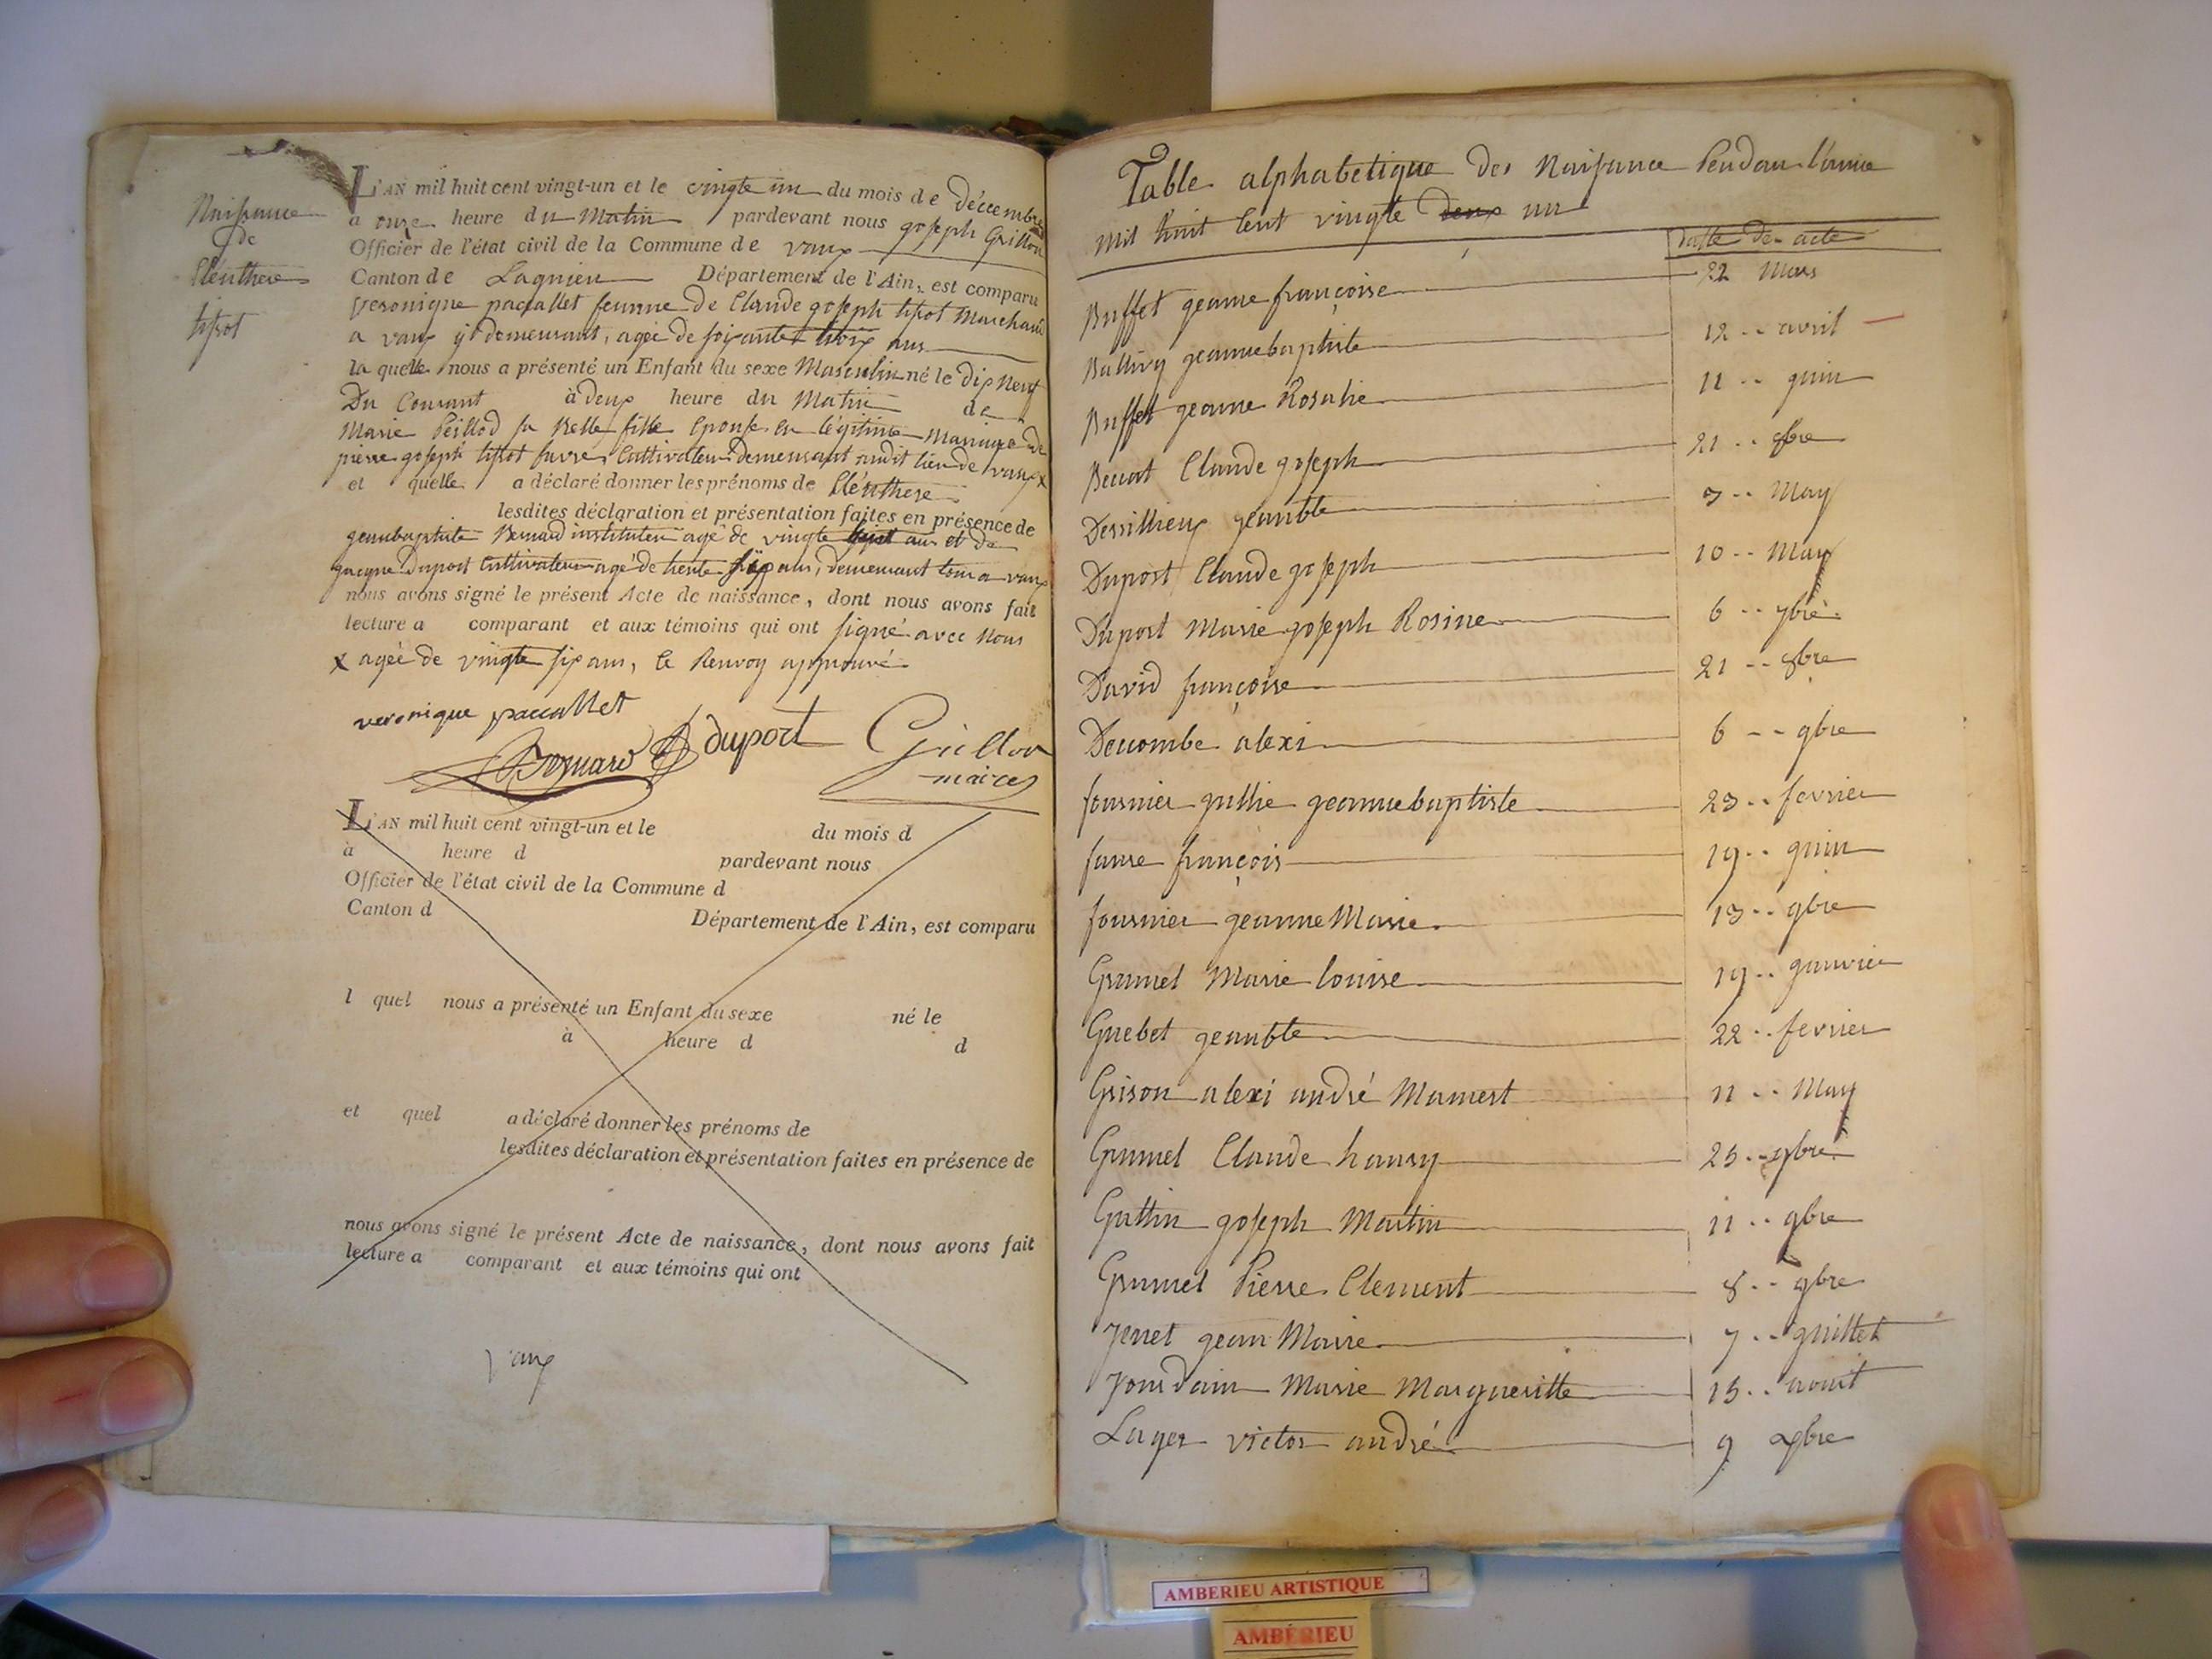 Naissance
de
Eleuthere
tissot
L'AN mil huit cent vingt-un et le vingte un du mois de décembre
a onze heure du Matin pardevant nous goseph Grillon
Officier de l'état civil de la Commune de vaux
Canton de Lagnieu Département de l'Ain, est comparu
veronique paccallet femme de Claude goseph tissot Marchand
a vaux y demeurant, agée de soixante trois ans
la quelle nous a présenté un Enfant du sexe Masculin né le dix Neuf
Du Courant à deux heure du Matin de
Marie Peillod sa Belle fille Epouse en légitime Mariage de
pierre goseph tissot favre, Cultivateur demeurant audit lieu de vaux x
et quelle a déclaré donner les prénoms de Eléuthere
lesdites déclaration et présentation faites en présence de
geanbaptiste Bernard instituteur agé de vingte ans et de
gacque Duport Cultivateur agé de trente six ans, demeurant tous a vaux
nous avons signé le présent Acte de naissance, dont nous avons fait
lecture a comparant et aux témoins qui ont signé avec Nous
x agée de vingte six ans, le Renvoy approuvé
veronique paccallet
Bernard duport Grillon
maire
L'AN mil huit cent vingt-un et le du mois d
à heure d pardevant nous
Officier de l'état civil de la Commune d
Canton d Département de l'Ain, est comparu
l quel nous a présenté un Enfant du sexe né le
à heure d d
et quel a déclaré donner les prénoms de
lesdites déclaration et présentation faites en présence de
nous avons signé le présent Acte de naissance, dont nous avons fait
lecture a comparant et aux témoins qui ont
vaux
Table alphabetique des Naissance Pendant l'année
mil huit Cent vingte deux un
Datte des acte
Buffet geanne françoise 22 Mars
Ballivy geannebaptiste 12 .. avril
Buffet geanne Rosalie 11 .. guin
Claude goseph 21 .. 9bre
Dessillieux geanbte 7 .. May
Duport Claude goseph 10 .. May
Duport Marie goseph Rosine 6 .. 7bre
David françoise 21 .. 8bre
Decombe alexi 6 .. 9bre
fournier gullie geannebaptiste 23 .. fevrier
favre françois 19 .. guin
fournier geanne Marie 13 .. 9bre
Grumel Marie louise 19 .. ganvier
Guebet geanbte 22 .. fevrier
Grison alexi andré Mamert 11 .. May
Grumel Claude hanry 25 .. 7bre
Guttin goseph Martin 11 .. 9bre
Grumel Pierre Clement 8 .. 9bre
Jenet gean Marie 7 .. guillet
Jourdain Marie Margueritte 15 .. aout
Lager victor andré 9 Xbre
AMBERIEU ARTISTIQUE
AMBÉRIEU